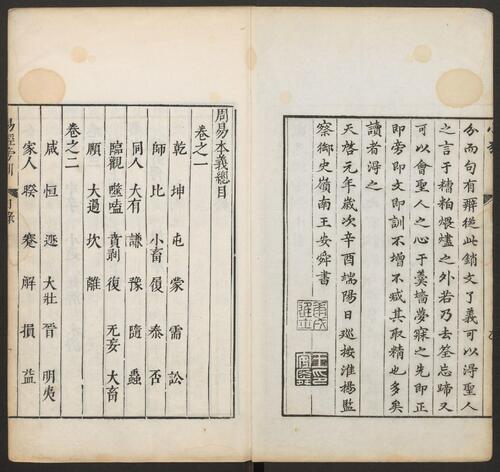 分而句有辨從此銷文了義可以淂聖人
之言于糟粕煨燼之外若乃去筌忘蹄又
可以會聖人之心于羮墻夢寐之先即正
即旁即文即訓不增不减其取精也多矣
讀者淂之
天啓元年歲次辛酉端陽日巡按淮揚監
察御史嶺南王安舜書
周易本義總目
卷之一
乾 坤 屯 蒙 需 訟
師 比 小畜 履 泰 否
同人 大有 謙 豫 隨 蠱
臨觀 噬嗑 賁剥 復 无妄 大畜
頤 大過 坎 離
卷之二
咸 恒 遯 大壯 晉 明夷
家人 睽 蹇 解 損 益